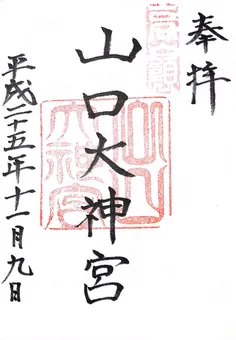 奉拝
山口大神宮
平成二十五年十一月九日